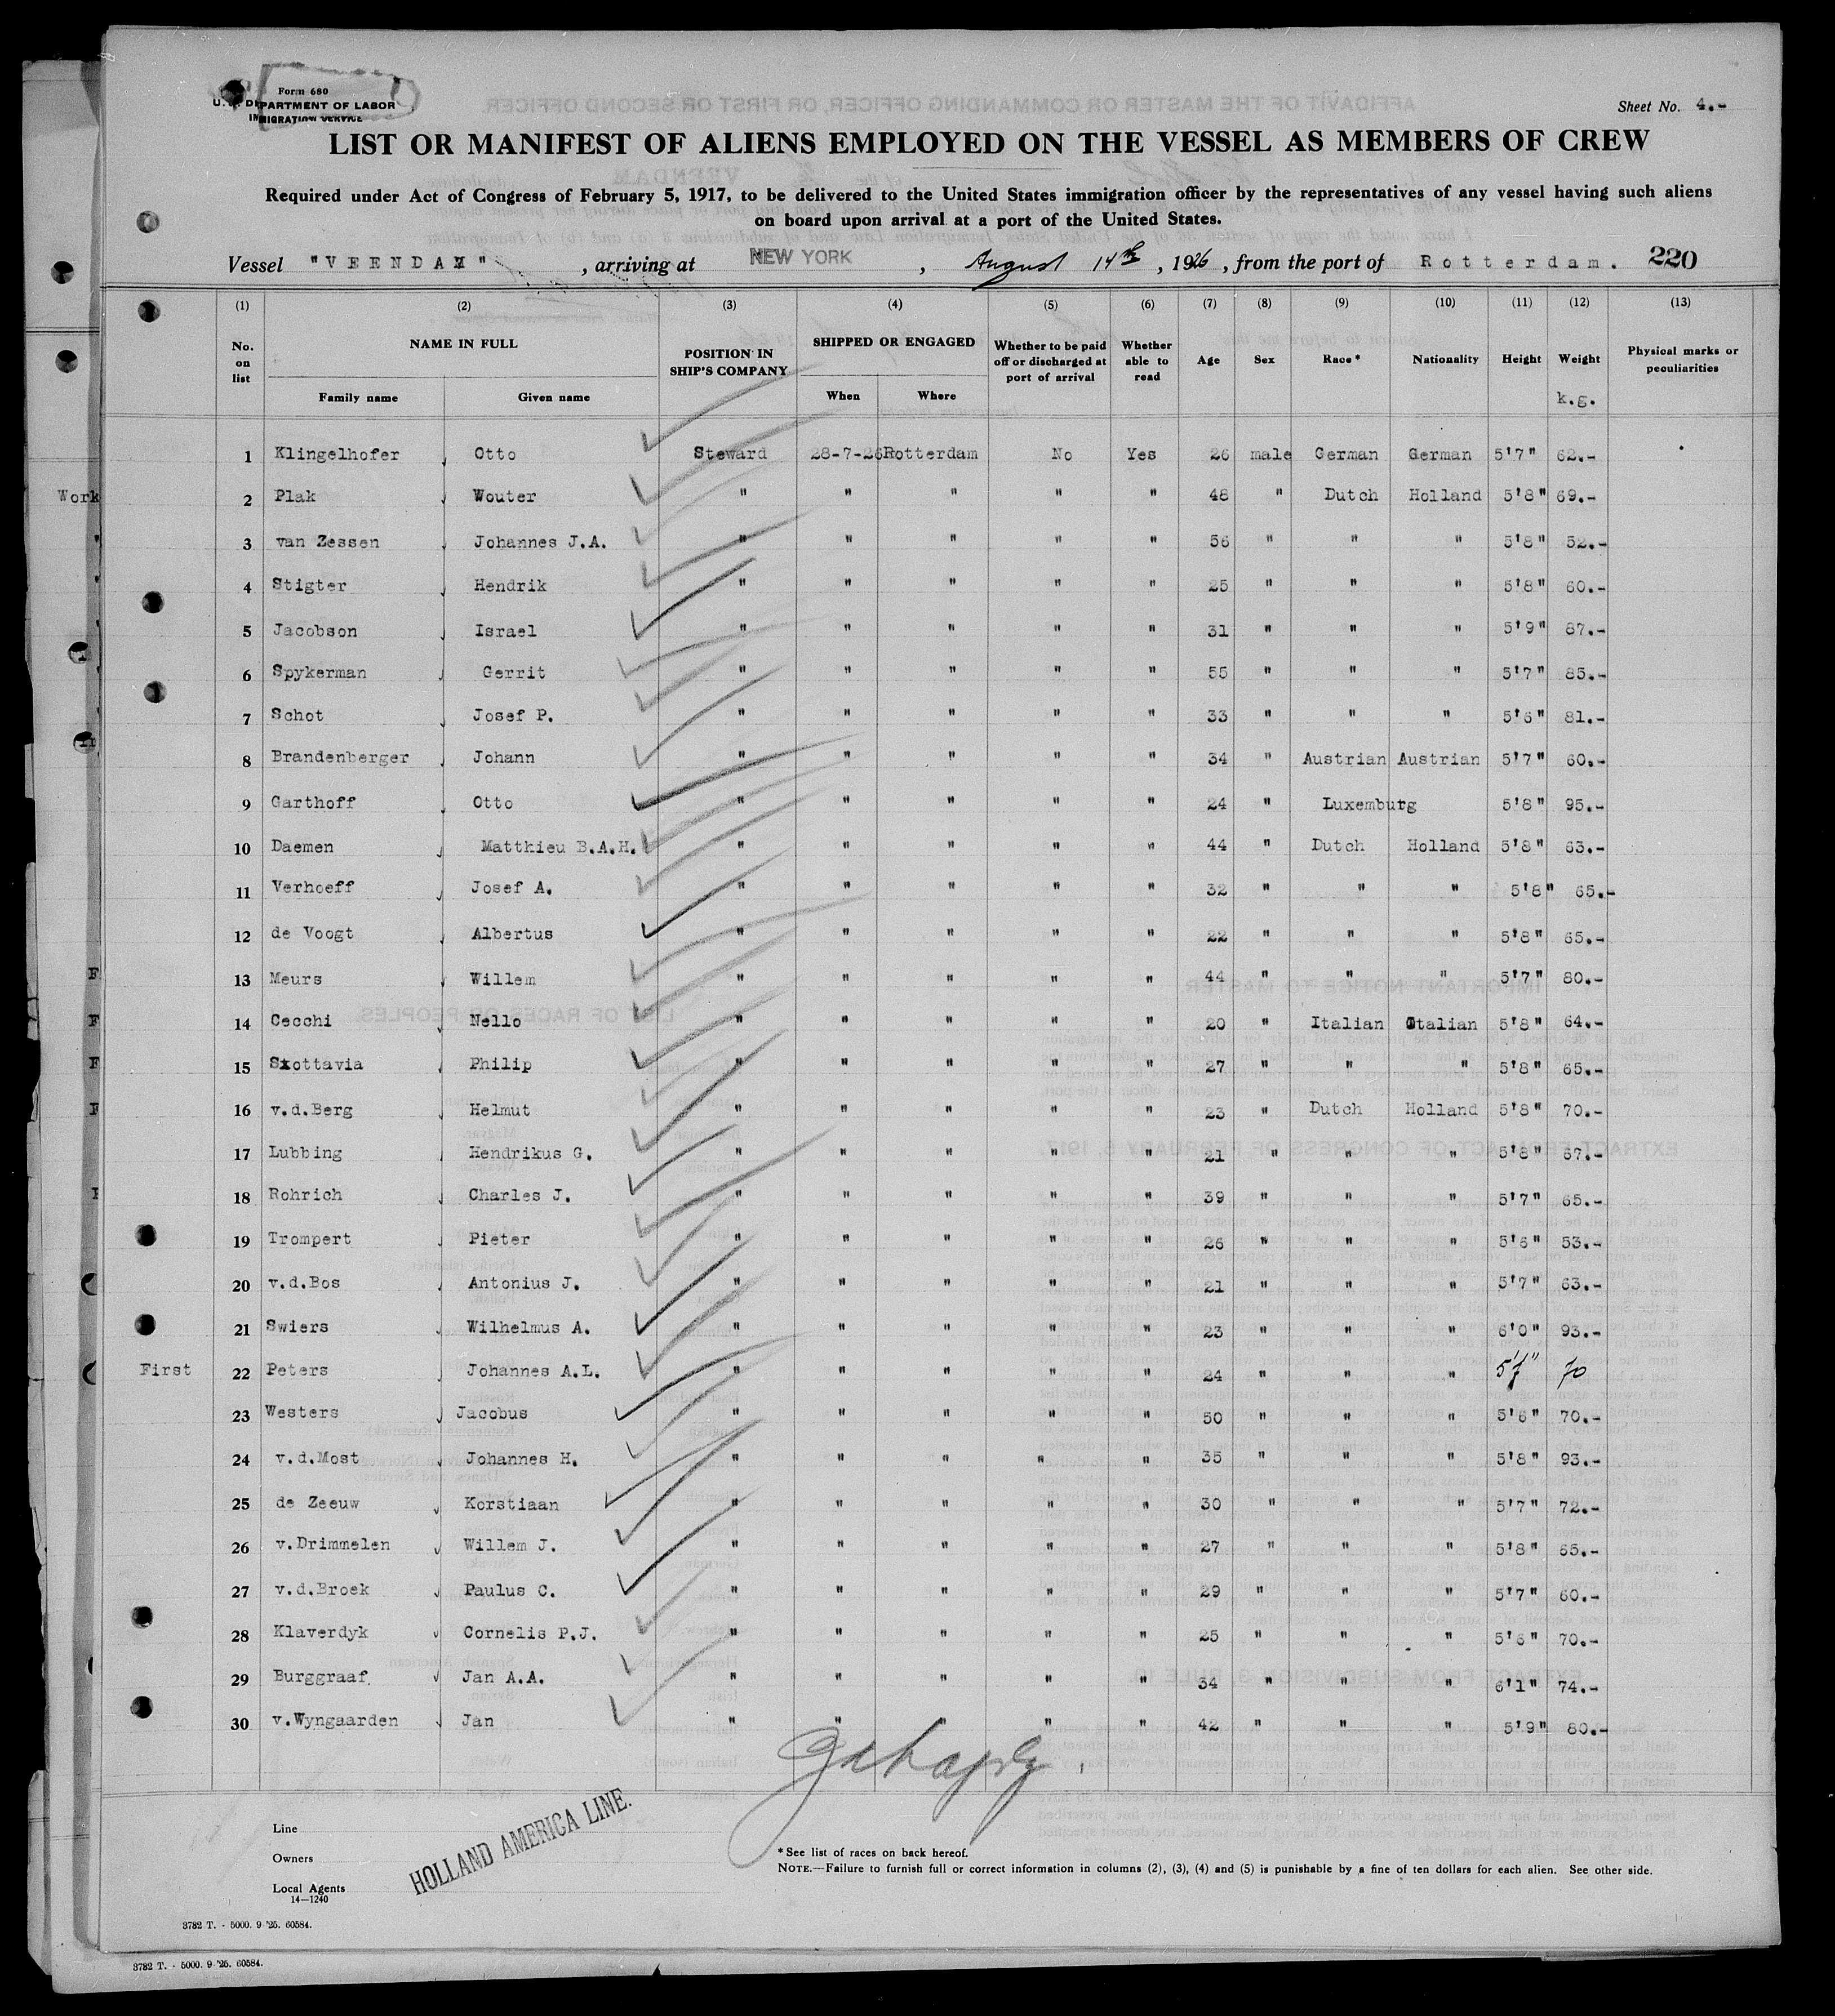 Form 680
U.S. DEPARTMENT OF LABOR
IMMIGRATION SERVICE
Sheet No. 4.-
LIST OR MANIFEST OF ALIENS EMPLOYED ON THE VESSEL AS MEMBERS OF CREW
Required under Act of Congress of February 5, 1917, to be delivered to the United States immigration officer by the representatives of any vessel having such aliens
on board upon arrival at a port of the United States.
Vessel "VEENDAM" , arriving at NEW YORK , August 14th , 1926 , from the port of Rotterdam. 220
(1) (2) (3) (4) (5) (6) (7) (8) (9) (10) (11) (12) (13)
No. on list NAME IN FULL Family name Given name POSITION IN SHIP'S COMPANY SHIPPED OR ENGAGED When Where Whether to be paid off or discharged at port of arrival Whether able to read Age Sex Race* Nationality Height Weight k.g. Physical marks or peculiarities
1 Klingelhofer Otto Steward 28-7-26 Rotterdam No Yes 26 male German German 5'7" 62.-
Work 2 Plak Wouter " " " " " 48 " Dutch Holland 5'8" 69.-
" 3 van Zessen Johannes J.A. " " " " " 56 " " " 5'8" 52.-
" 4 Stigter Hendrik " " " " " 25 " " " 5'8" 60.-
5 Jacobson Israel " " " " " 31 " " " 5'9" 87.-
6 Spykerman Gerrit " " " " " 55 " " " 5'7" 85.-
7 Schot Josef P. " " " " " 33 " " " 5'6" 81.-
8 Brandenberger Johann " " " " " 34 " Austrian Austrian 5'7" 60.-
9 Garthoff Otto " " " " " 24 " Luxemburg 5'8" 95.-
10 Daemen Matthieu B.A.H. " " " " " 44 " Dutch Holland 5'8" 63.-
11 Verhoeff Josef A. " " " " " 32 " " " 5'8" 65.-
12 de Voogt Albertus " " " " " 22 " " " 5'8" 65.-
F 13 Meurs Willem " " " " " 44 " " " 5'7" 80.-
F 14 Cecchi Nello " " " " " 20 " Italian Italian 5'8" 64.-
F 15 Scottavia Philip " " " " " 27 " " " 5'8" 65.-
F 16 v.d.Berg Helmut " " " " " 23 " Dutch Holland 5'8" 70.-
17 Lubbing Hendrikus G. " " " " " 21 " " " 5'8" 67.-
18 Rohrich Charles J. " " " " " 39 " " " 5'7" 65.-
19 Trompert Pieter " " " " " 26 " " " 5'6" 53.-
20 v.d.Bos Antonius J. " " " " " 21 " " " 5'7" 63.-
21 Swiers Wilhelmus A. " " " " " 23 " " " 6'0" 93.-
First 22 Peters Johannes A.L. " " " " " 24 " " " 5'7" 70
23 Westers Jacobus " " " " " 50 " " " 5'6" 70.-
24 v.d.Most Johannes H. " " " " " 35 " " " 5'8" 93.-
25 de Zeeuw Korstiaan " " " " " 30 " " " 5'7" 72.-
26 v.Drimmelen Willem J. " " " " " 27 " " " 5'8" 65.-
27 v.d.Broek Paulus C. " " " " " 29 " " " 5'7" 60.-
28 Klaverdyk Cornelis P.J. " " " " " 25 " " " 5'6" 70.-
29 Burggraaf Jan A.A. " " " " " 34 " " " 6'1" 74.-
30 v.Wyngaarden Jan " " " " " 42 " " " 5'9" 80.-
Line
Owners
Local Agents
14—1240
HOLLAND AMERICA LINE.
*See list of races on back hereof.
NOTE.—Failure to furnish full or correct information in columns (2), (3), (4) and (5) is punishable by a fine of ten dollars for each alien. See other side.
3782 T. - 5000. 9-'25. 60584.
3782 T. - 5000. 9-'25. 60584.